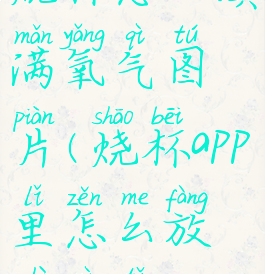 mǎn yǎng qì tú
满氧气图
piàn shāo bēi
片(烧杯app
lǐ zěn me fàng
里怎么放